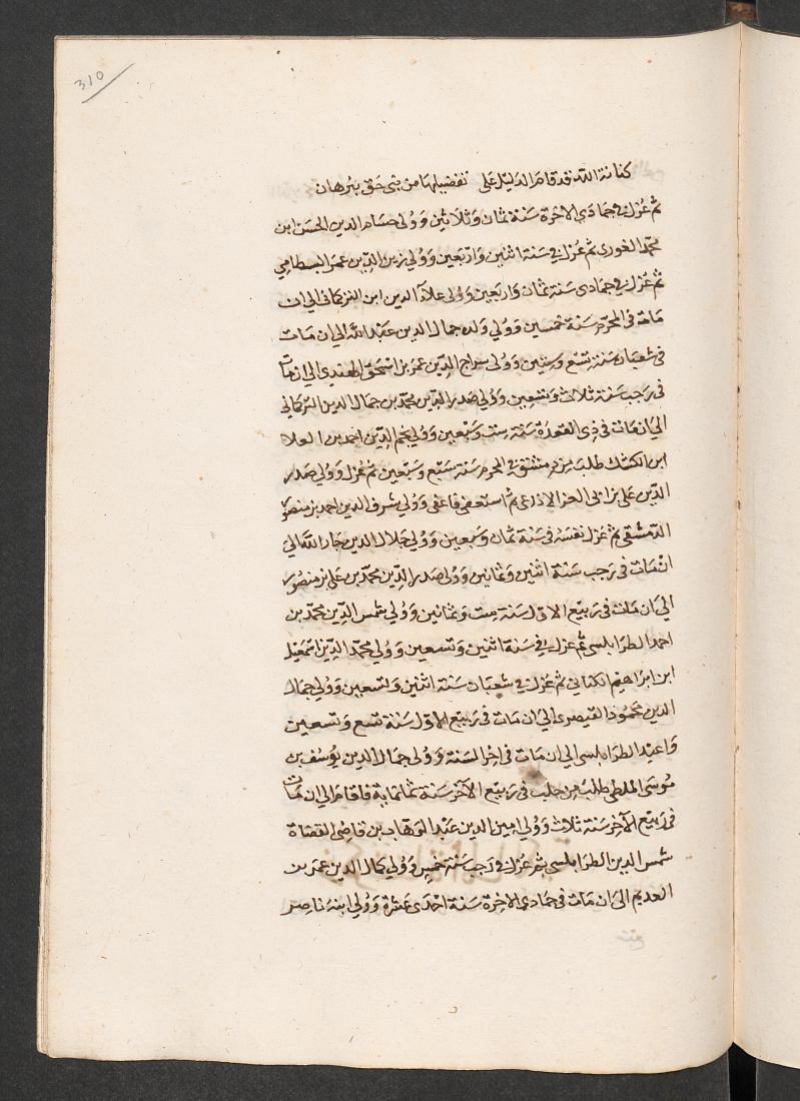 310
كنانة الله قد قام الدليل على تفضيلها من بنى حق ببرهان
ثم عُزل في جمادي الاخرة سَنة ثمان وثلاثين وَوُلي حسام الدين الحسَن ابن
محمّد الغوري ثم عُزل في سَنة اثنين وَاربَعين وَوُلي زين الدّين عمَر البسطامِي
ثم عُزل في جمادى سَنة ثمان وَاربَعين وَوُلى علآ الدين ابن التركماني الي ان
مَات في المحرّم سَنة خمسين وَوُلي وَلده جمال الدين عَبد الله الي ان مَات
في شعبان سَنة تِسْع وسِتين وَوُلى سراج الدّين عمَر بن اسحٰق الهندي الي ان مَات
في رَجب سَنة ثلاث وَسَبْعِين وَوُلي صدر الدّين محمّد بن جمال الدين التركماني
الي ان مَات في ذي القعدة سَنة ست وَسَبْعين وَوُلي نجم الدّين احمد بن العلا
ابن الكشك طلبَ مِن دمشق في المحرم سَنة سَبْع وَسَبْعين ثم عُزل وَوُلي صَدر
الدّين عَلى بن ابى العز الاذرعي ثم استعفى فاعفى وَوُلي شرف الدين احمد بن منصوُر
الدّمشقي ثم عَزل نفسَهُ في سَنة ثمان وَسَبعين وَوُلي جَلال الدين جَار الله الي
ان مَات في رَجب سَنة اثنين وَثمانين وَوُلى صَدر الدّين محمّد بن عَلي بن منصُور
الي ان مَات في رَبيع الاوّل سَنة سِت وَثمَانين وَوُلي شمس الدّين محمّد بن
احمد الطرَابلسى ثم عُزل في سَنة اثنين وَتسعين وَوُلي محمّد الدّين اسمَعيل
ابن ابرَاهِيم الكناني ثم عُزل في شعبَان سَنة اثنين وَتسعين وَوُلي جمَال
الدين محمود القيصري الي ان مَات في رَبيع الاوّل سَنة تسع وَتسعين
وَاعيد الطرَابلسى الي ان مَات في اخر السَنة وَوُلى جمَال الدين يوُسُف بن
مُوسَى الملطى طلبَ مِن حلب في رَبيع الآخر سَنة ثمانماية فاقام الي ان مَات
في رَبيع الآخر سَنة ثلاث وَوُلي امين الدين عَبد الوَهاب بن قاضي القضاة
شمس الدين الطرَابلسى ثم عُزل في رَجب سَنة خمس وَوُلي كمال الدين عمَر بن
العديم الى ان مَات في جمادي الاخرة سَنة احدَى عَشرة وَوُلي ابنه ناصر